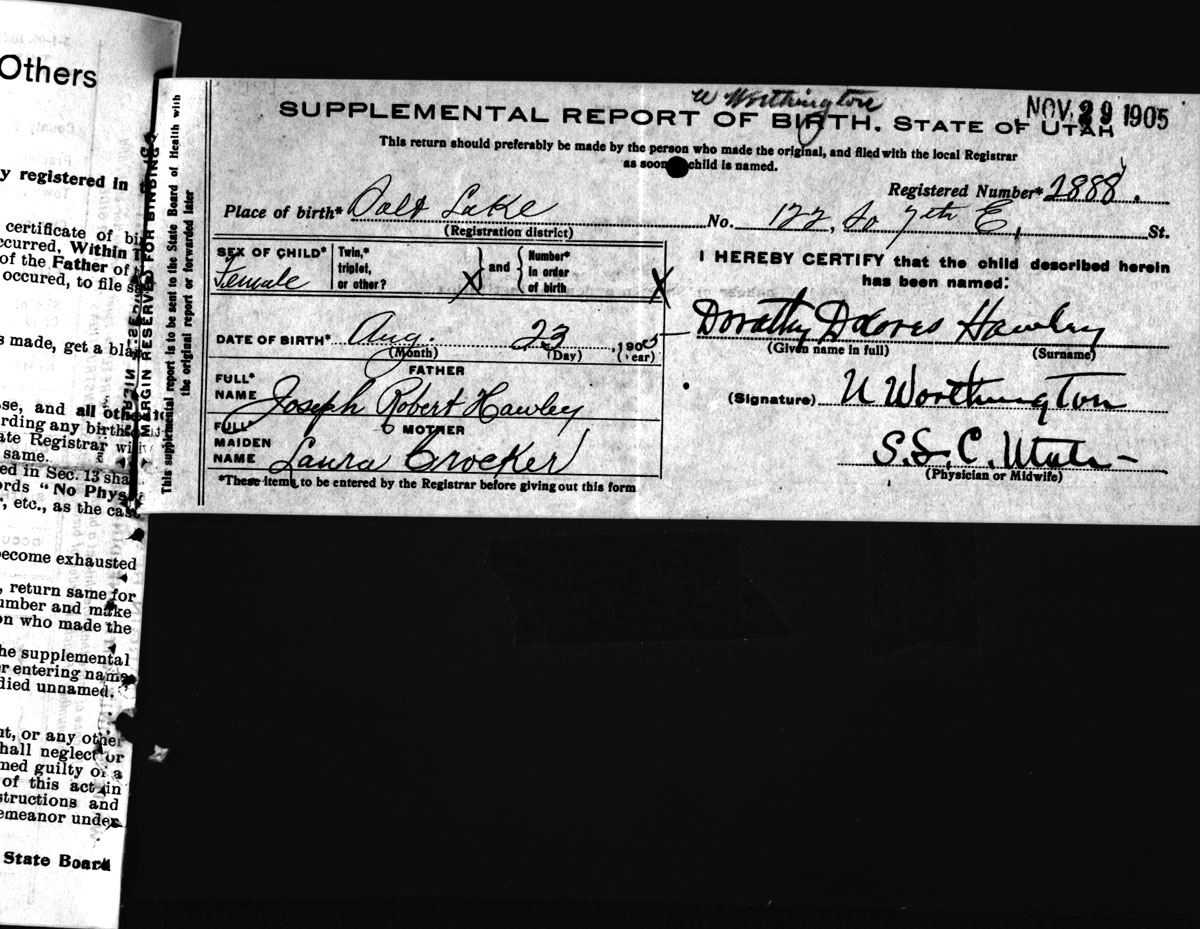 Others
y registered in
certificate of bi
ccurred, Within
of the Father of
occured, to file s
s made, get a bla
se, and all oth
rding any birth
ate Registrar wi
same.
ed in Sec. 13 sha
ords "No Phys
r, etc., as the cas
become exhausted
, return same for
umber and make
on who made the
he supplemental
r entering name
died unnamed.
nt, or any other
hall neglect or
med guilty of a
of this act in
structions and
emeanor under
State Board
MARGIN RESERVED FOR BINDING
This supplemental report is to be sent to the State Board of Health with
the original report or forwarded later
W Worthington
SUPPLEMENTAL REPORT OF BIRTH. STATE OF UTAH
NOV. 29 1905
This return should preferably be made by the person who made the original, and filed with the local Registrar
as soon child is named.
Registered Number* 1888.
Place of birth* Salt Lake No. 122, So 7th E, St.
(Registration district)
SEX OF CHILD* Female
Twin,* triplet, or other? X and Number* in order of birth X
I HEREBY CERTIFY that the child described herein
has been named:
DATE OF BIRTH* Aug. 23, 1905
(Month) (Day) (Year)
Dorothy Dolores Hawley
(Given name in full) (Surname)
FATHER
FULL* NAME Joseph Robert Hawley
(Signature) W Worthington
MOTHER
FULL MAIDEN NAME Laura Crocker
S.L.C. Utah
(Physician or Midwife)
*These items to be entered by the Registrar before giving out this form